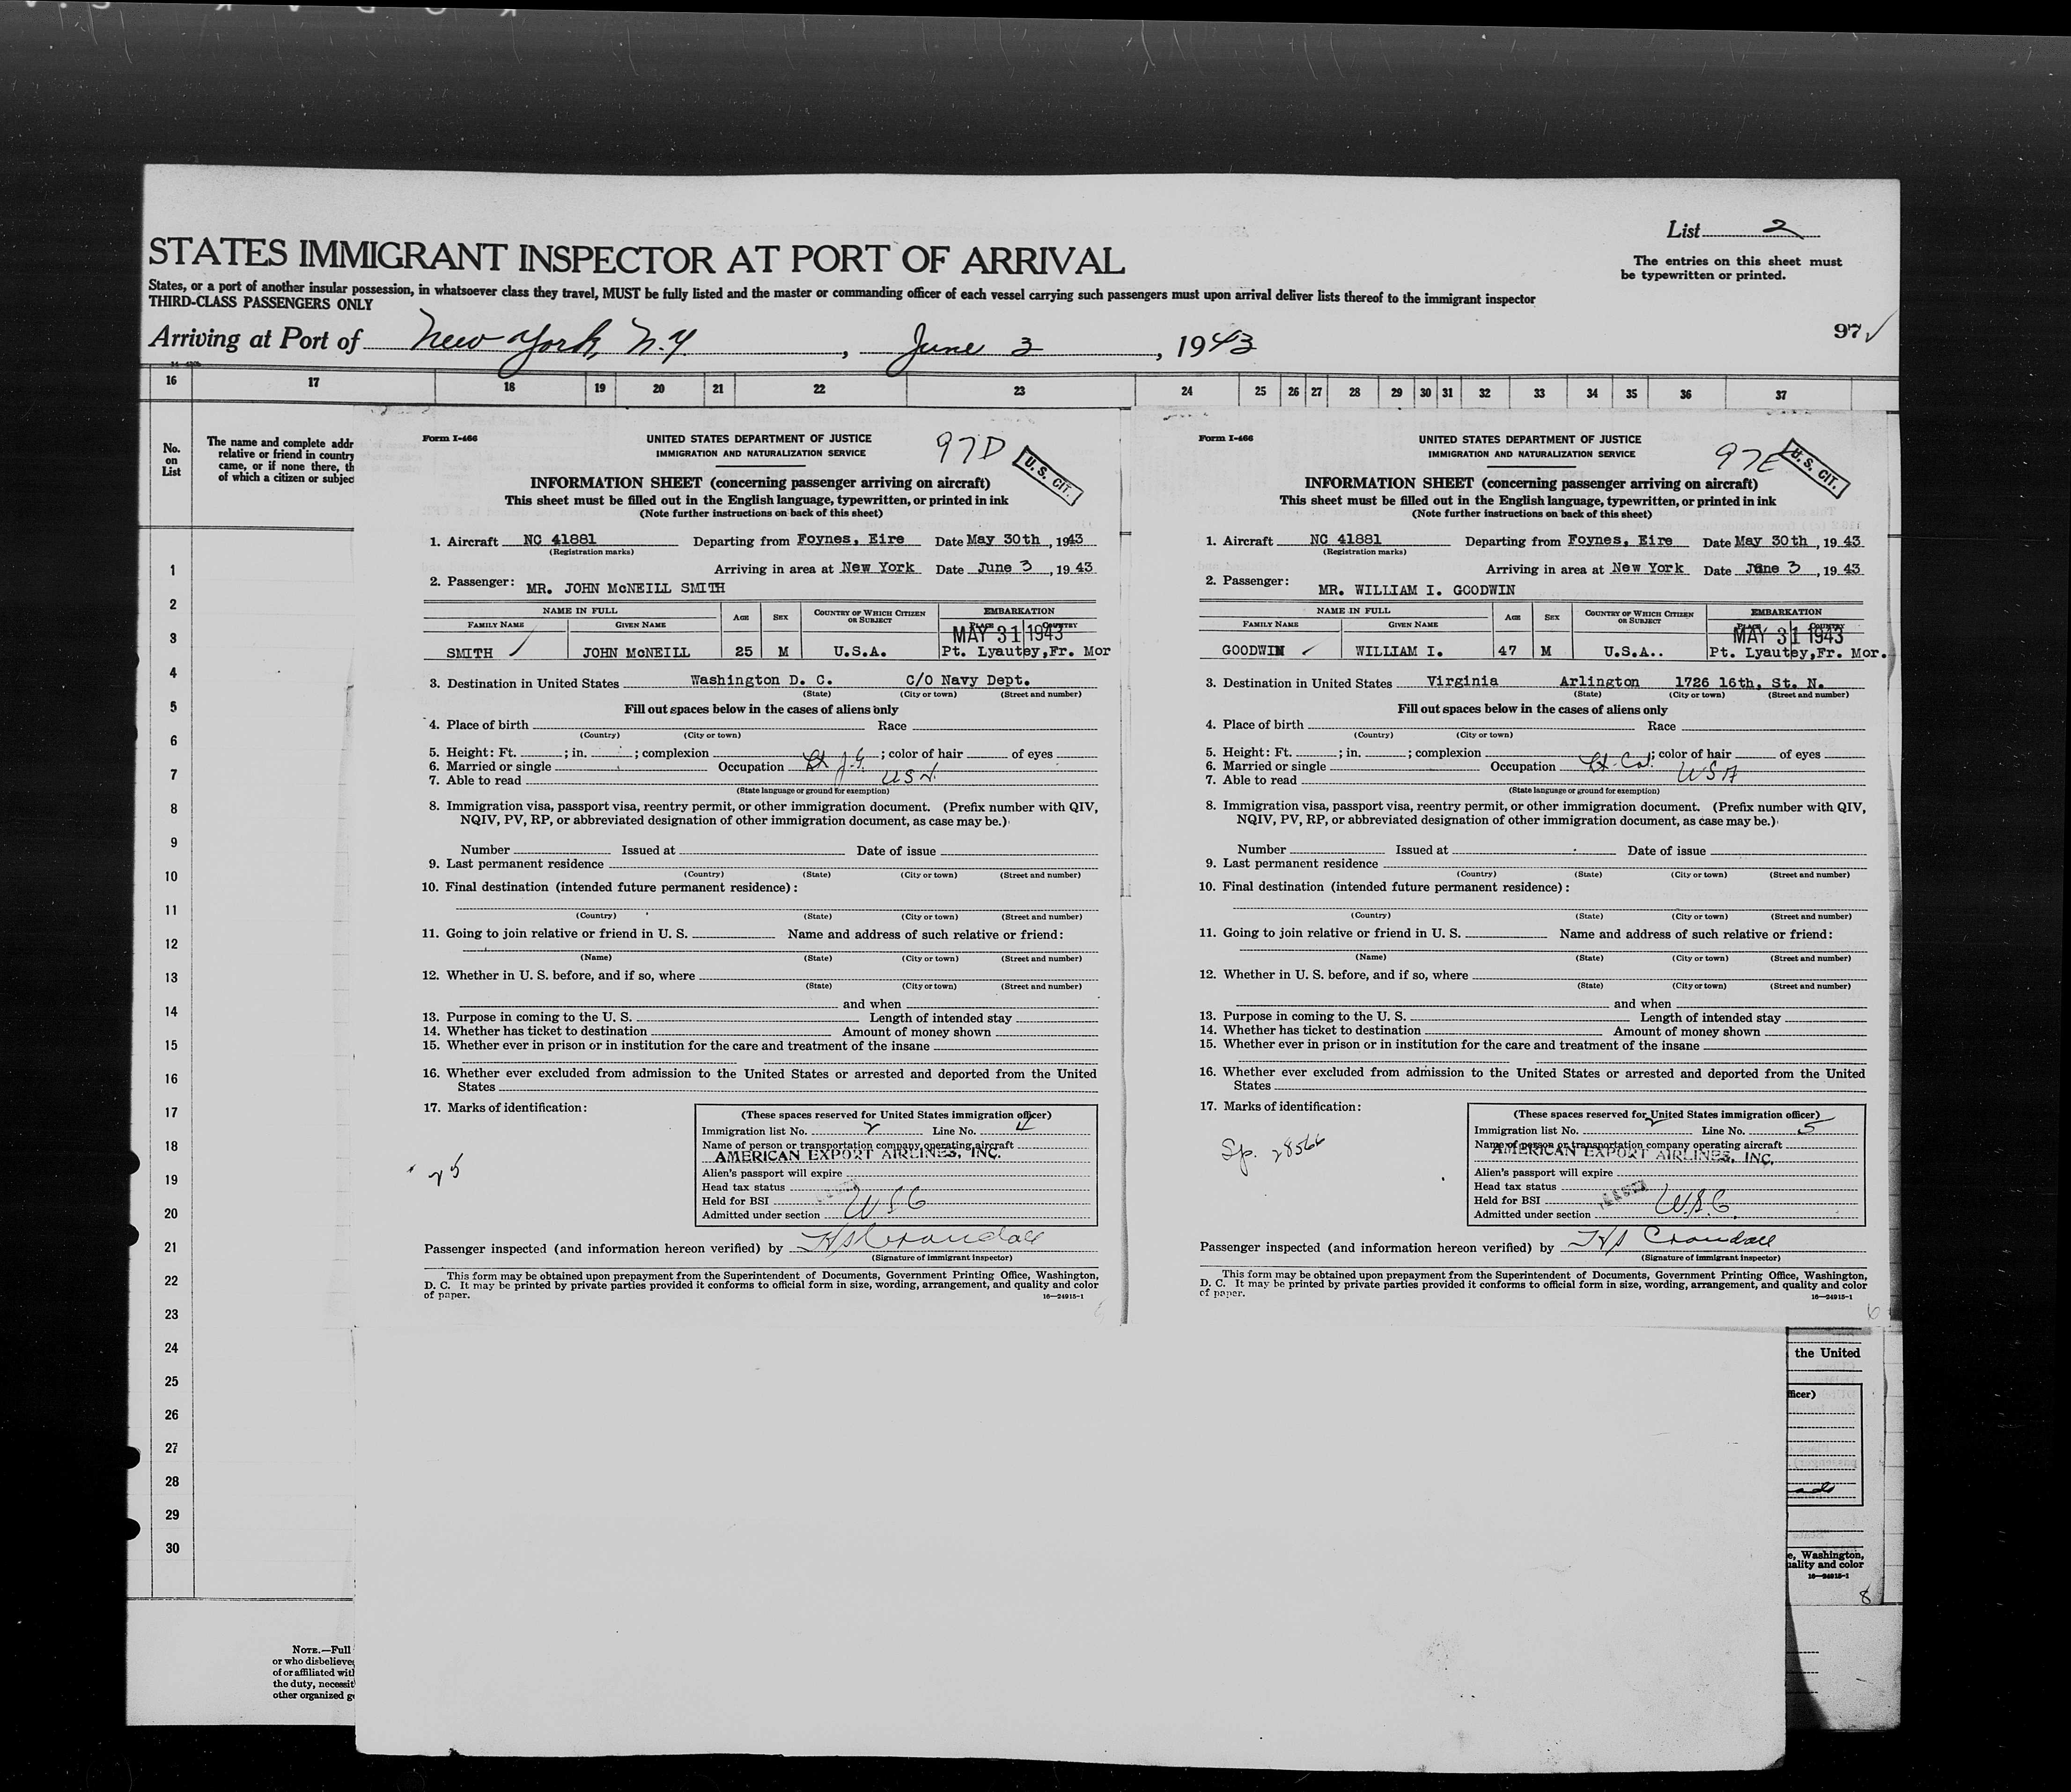 List 2
STATES IMMIGRANT INSPECTOR AT PORT OF ARRIVAL
The entries on this sheet must
be typewritten or printed.
States, or a port of another insular possession, in whatsoever class they travel, MUST be fully listed and the master or commanding officer of each vessel carrying such passengers must upon arrival deliver lists thereof to the immigrant inspector
THIRD-CLASS PASSENGERS ONLY
Arriving at Port of New York, N.Y. , June 3 , 1943
97 ✓
16 17 18 19 20 21 22 23 24 25 26 27 28 29 30 31 32 33 34 35 36 37
No.
on
List
The name and complete addr
relative or friend in country
came, or if none there, th
of which a citizen or subjec
1
2
3
4
5
6
7
8
9
10
11
12
13
14
15
16
17
18
19
20
21
22
23
24
25
26
27
28
29
30
NOTE.—Full
or who disbelieve
of or affiliated wit
the duty, necessit
other organized g
Form I-466
UNITED STATES DEPARTMENT OF JUSTICE
IMMIGRATION AND NATURALIZATION SERVICE
97D
U. S. CIT.
INFORMATION SHEET (concerning passenger arriving on aircraft)
This sheet must be filled out in the English language, typewritten, or printed in ink
(Note further instructions on back of this sheet)
1. Aircraft NC 41881 Departing from Foynes, Eire Date May 30th , 1943
(Registration marks)
Arriving in area at New York Date June 3 , 1943
2. Passenger: MR. JOHN McNEILL SMITH
NAME IN FULL AGE SEX COUNTRY OF WHICH CITIZEN OR SUBJECT EMBARKATION
FAMILY NAME GIVEN NAME PLACE COUNTRY
MAY 31 1943
SMITH ✓ JOHN McNEILL 25 M U.S.A. Pt. Lyautey,Fr. Mor
3. Destination in United States Washington D. C. C/O Navy Dept.
(State) (City or town) (Street and number)
Fill out spaces below in the cases of aliens only
4. Place of birth Race
(Country) (City or town)
5. Height: Ft. ; in. ; complexion ; color of hair of eyes
6. Married or single Occupation Lt J.G.
7. Able to read USN.
(State language or ground for exemption)
8. Immigration visa, passport visa, reentry permit, or other immigration document. (Prefix number with QIV,
NQIV, PV, RP, or abbreviated designation of other immigration document, as case may be.)
Number Issued at Date of issue
9. Last permanent residence
(Country) (State) (City or town) (Street and number)
10. Final destination (intended future permanent residence):
(Country) (State) (City or town) (Street and number)
11. Going to join relative or friend in U. S. Name and address of such relative or friend:
(Name) (State) (City or town) (Street and number)
12. Whether in U. S. before, and if so, where
(State) (City or town) (Street and number)
and when
13. Purpose in coming to the U. S. Length of intended stay
14. Whether has ticket to destination Amount of money shown
15. Whether ever in prison or in institution for the care and treatment of the insane
16. Whether ever excluded from admission to the United States or arrested and deported from the United
States
17. Marks of identification:
(These spaces reserved for United States immigration officer)
Immigration list No. 2 Line No. 4
Name of person or transportation company operating aircraft
AMERICAN EXPORT AIRLINES, INC.
Alien's passport will expire
Head tax status
Held for BSI
Admitted under section USC
Passenger inspected (and information hereon verified) by H S Crandall
(Signature of immigrant inspector)
This form may be obtained upon prepayment from the Superintendent of Documents, Government Printing Office, Washington,
D. C. It may be printed by private parties provided it conforms to official form in size, wording, arrangement, and quality and color
of paper.
16—24915-1
Form I-466
UNITED STATES DEPARTMENT OF JUSTICE
IMMIGRATION AND NATURALIZATION SERVICE
97E
U. S. CIT.
INFORMATION SHEET (concerning passenger arriving on aircraft)
This sheet must be filled out in the English language, typewritten, or printed in ink
(Note further instructions on back of this sheet)
1. Aircraft NC 41881 Departing from Foynes, Eire Date May 30th , 1943
(Registration marks)
Arriving in area at New York Date June 3 , 1943
2. Passenger: MR. WILLIAM I. GOODWIN
NAME IN FULL AGE SEX COUNTRY OF WHICH CITIZEN OR SUBJECT EMBARKATION
FAMILY NAME GIVEN NAME PLACE COUNTRY
MAY 31 1943
GOODWIN ✓ WILLIAM I. 47 M U.S.A.. Pt. Lyautey,Fr. Mor.
3. Destination in United States Virginia Arlington 1726 16th, St. N.
(State) (City or town) (Street and number)
Fill out spaces below in the cases of aliens only
4. Place of birth Race
(Country) (City or town)
5. Height: Ft. ; in. ; complexion ; color of hair of eyes
6. Married or single Occupation Lt. Col.
7. Able to read USA
(State language or ground for exemption)
8. Immigration visa, passport visa, reentry permit, or other immigration document. (Prefix number with QIV,
NQIV, PV, RP, or abbreviated designation of other immigration document, as case may be.)
Number Issued at Date of issue
9. Last permanent residence
(Country) (State) (City or town) (Street and number)
10. Final destination (intended future permanent residence):
(Country) (State) (City or town) (Street and number)
11. Going to join relative or friend in U. S. Name and address of such relative or friend:
(Name) (State) (City or town) (Street and number)
12. Whether in U. S. before, and if so, where
(State) (City or town) (Street and number)
and when
13. Purpose in coming to the U. S. Length of intended stay
14. Whether has ticket to destination Amount of money shown
15. Whether ever in prison or in institution for the care and treatment of the insane
16. Whether ever excluded from admission to the United States or arrested and deported from the United
States
17. Marks of identification:
Sp. 28566
(These spaces reserved for United States immigration officer)
Immigration list No. 2 Line No. 5
Name of person or transportation company operating aircraft
AMERICAN EXPORT AIRLINES, INC.
Alien's passport will expire
Head tax status
Held for BSI
Admitted under section U.S.C.
Passenger inspected (and information hereon verified) by H S Crandall
(Signature of immigrant inspector)
This form may be obtained upon prepayment from the Superintendent of Documents, Government Printing Office, Washington,
D. C. It may be printed by private parties provided it conforms to official form in size, wording, arrangement, and quality and color
of paper.
16—24915-1
6
the United
fficer)
e, Washington,
uality and color
16—24915-1
8